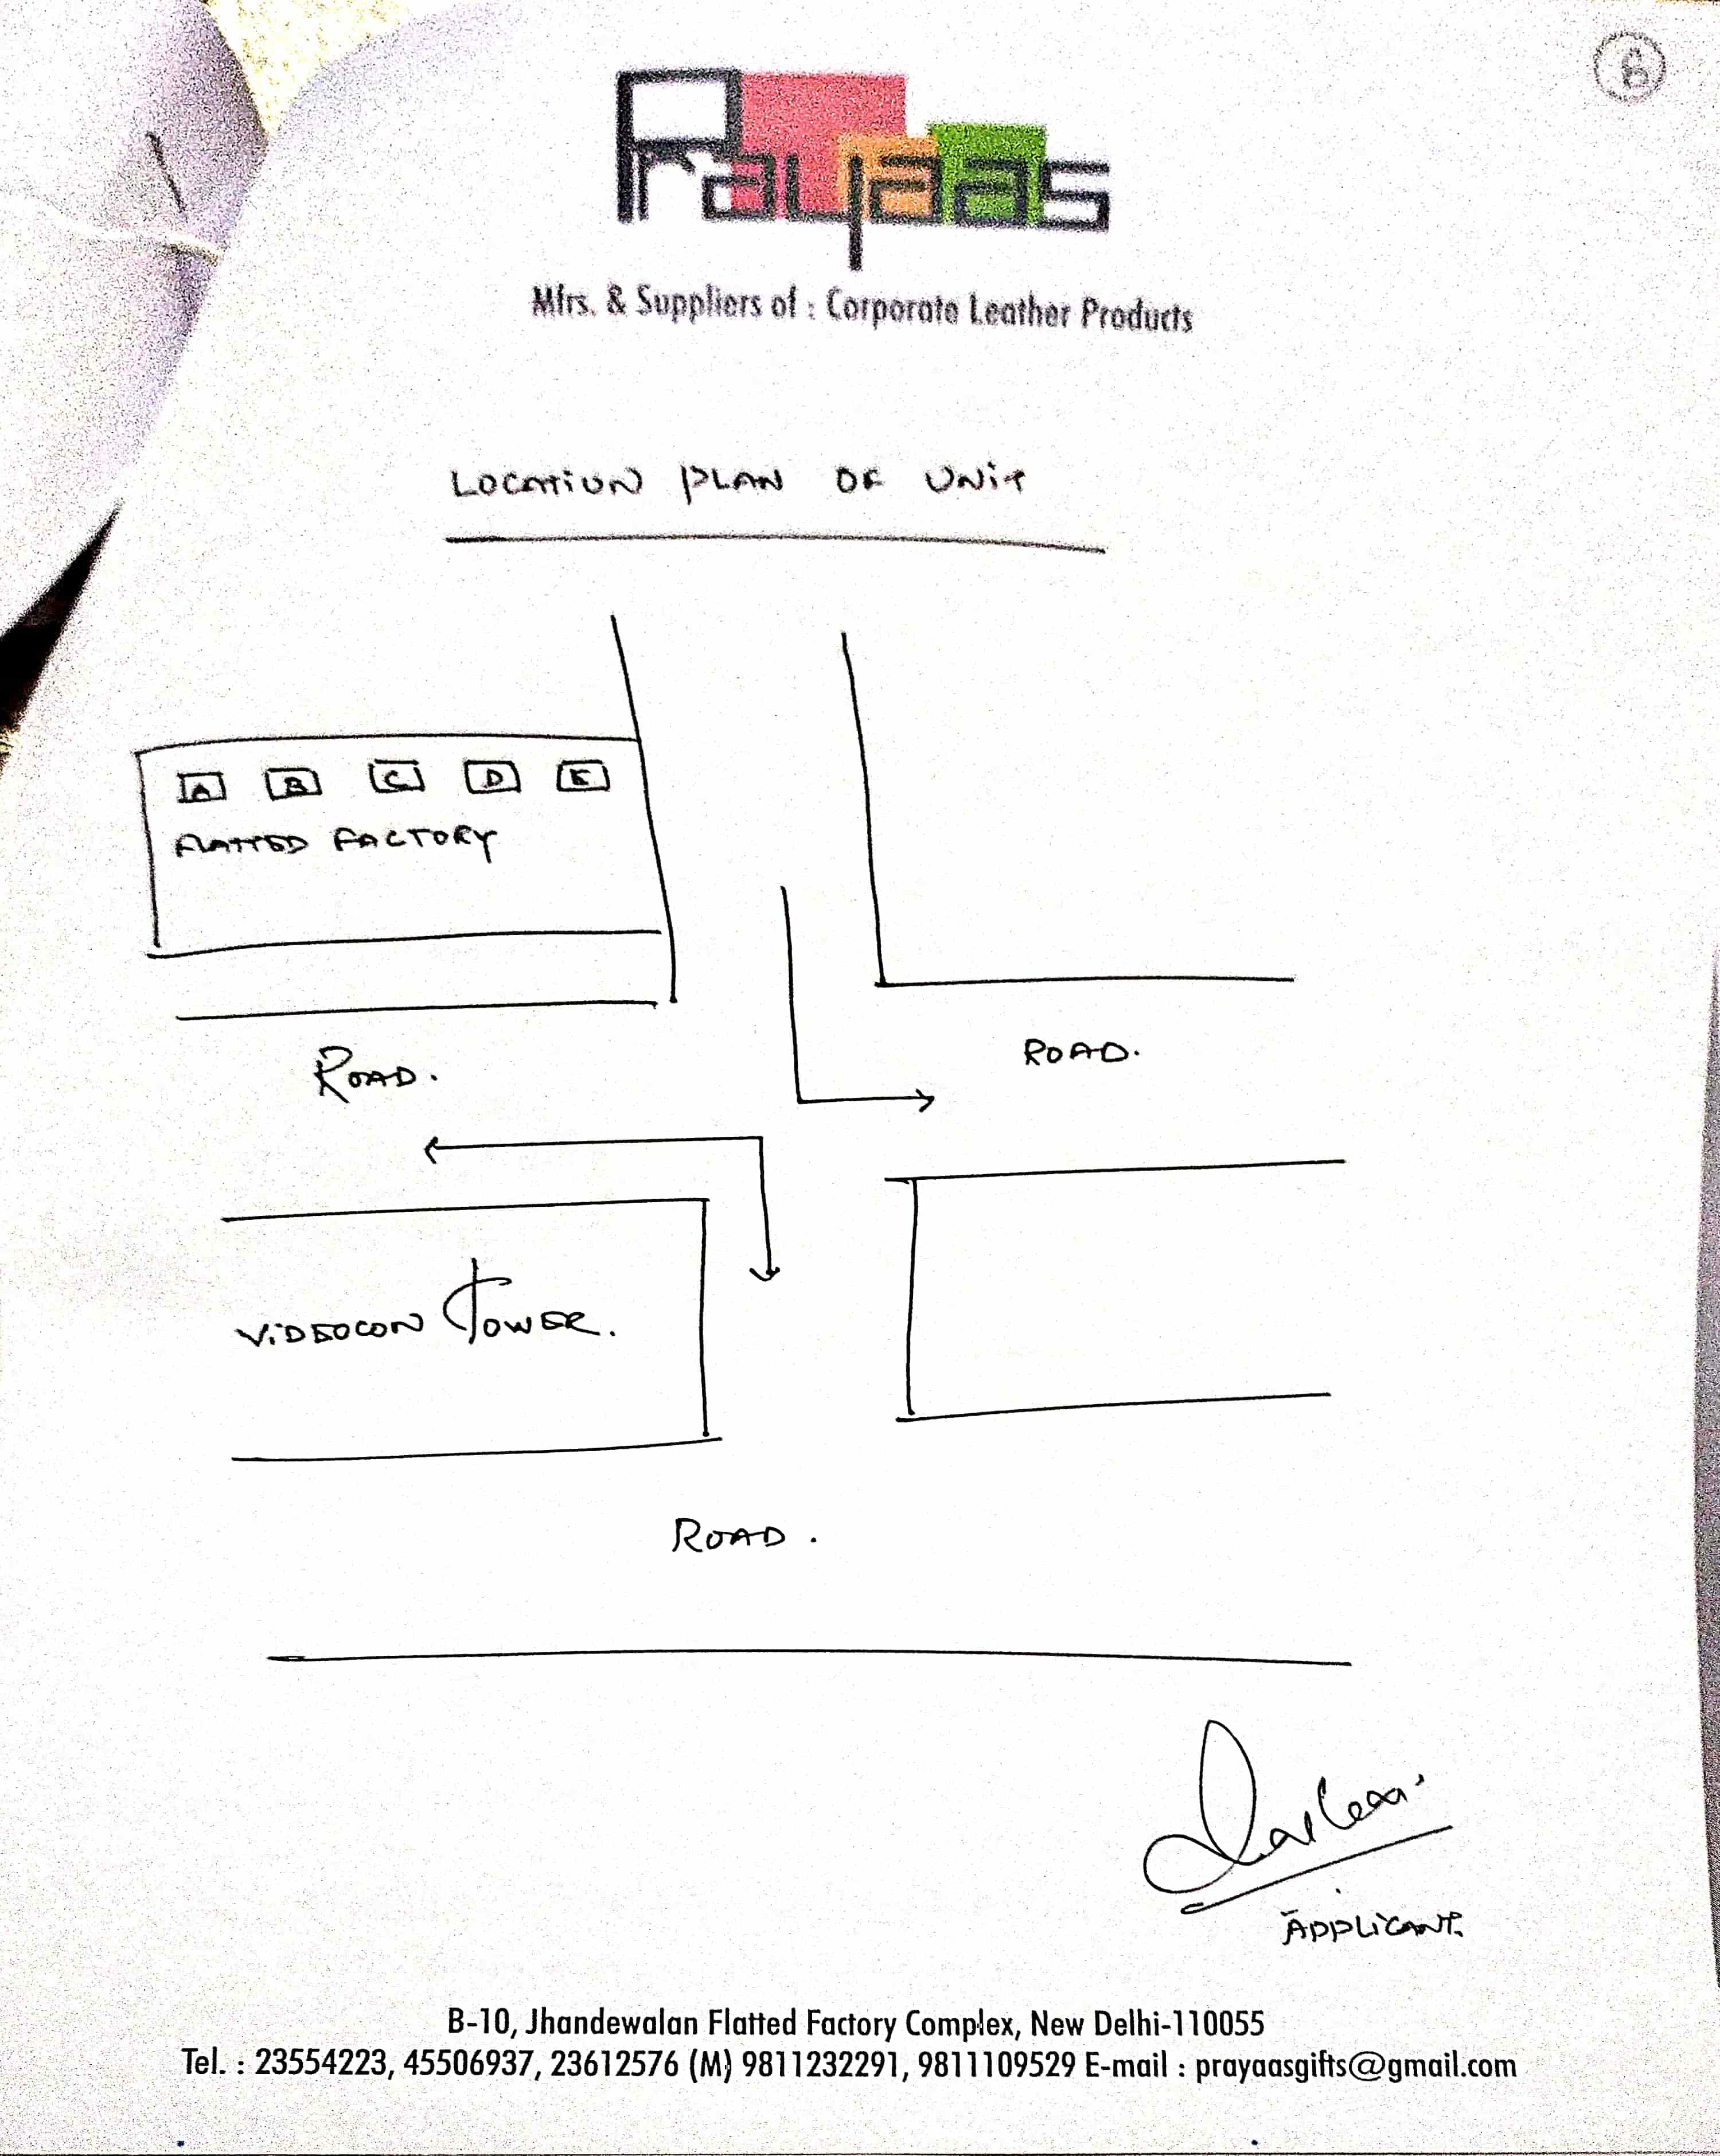 Prayaas
Mfrs. & Suppliers of : Corporate Leather Products
LOCATION PLAN OF UNIT
A B C D E
FLATTED FACTORY
ROAD.
ROAD.
VIDEOCON TOWER.
ROAD.
APPLICANT.
B-10, Jhandewalan Flatted Factory Complex, New Delhi-110055
Tel. : 23554223, 45506937, 23612576 (M) 9811232291, 9811109529 E-mail : prayaasgifts@gmail.com